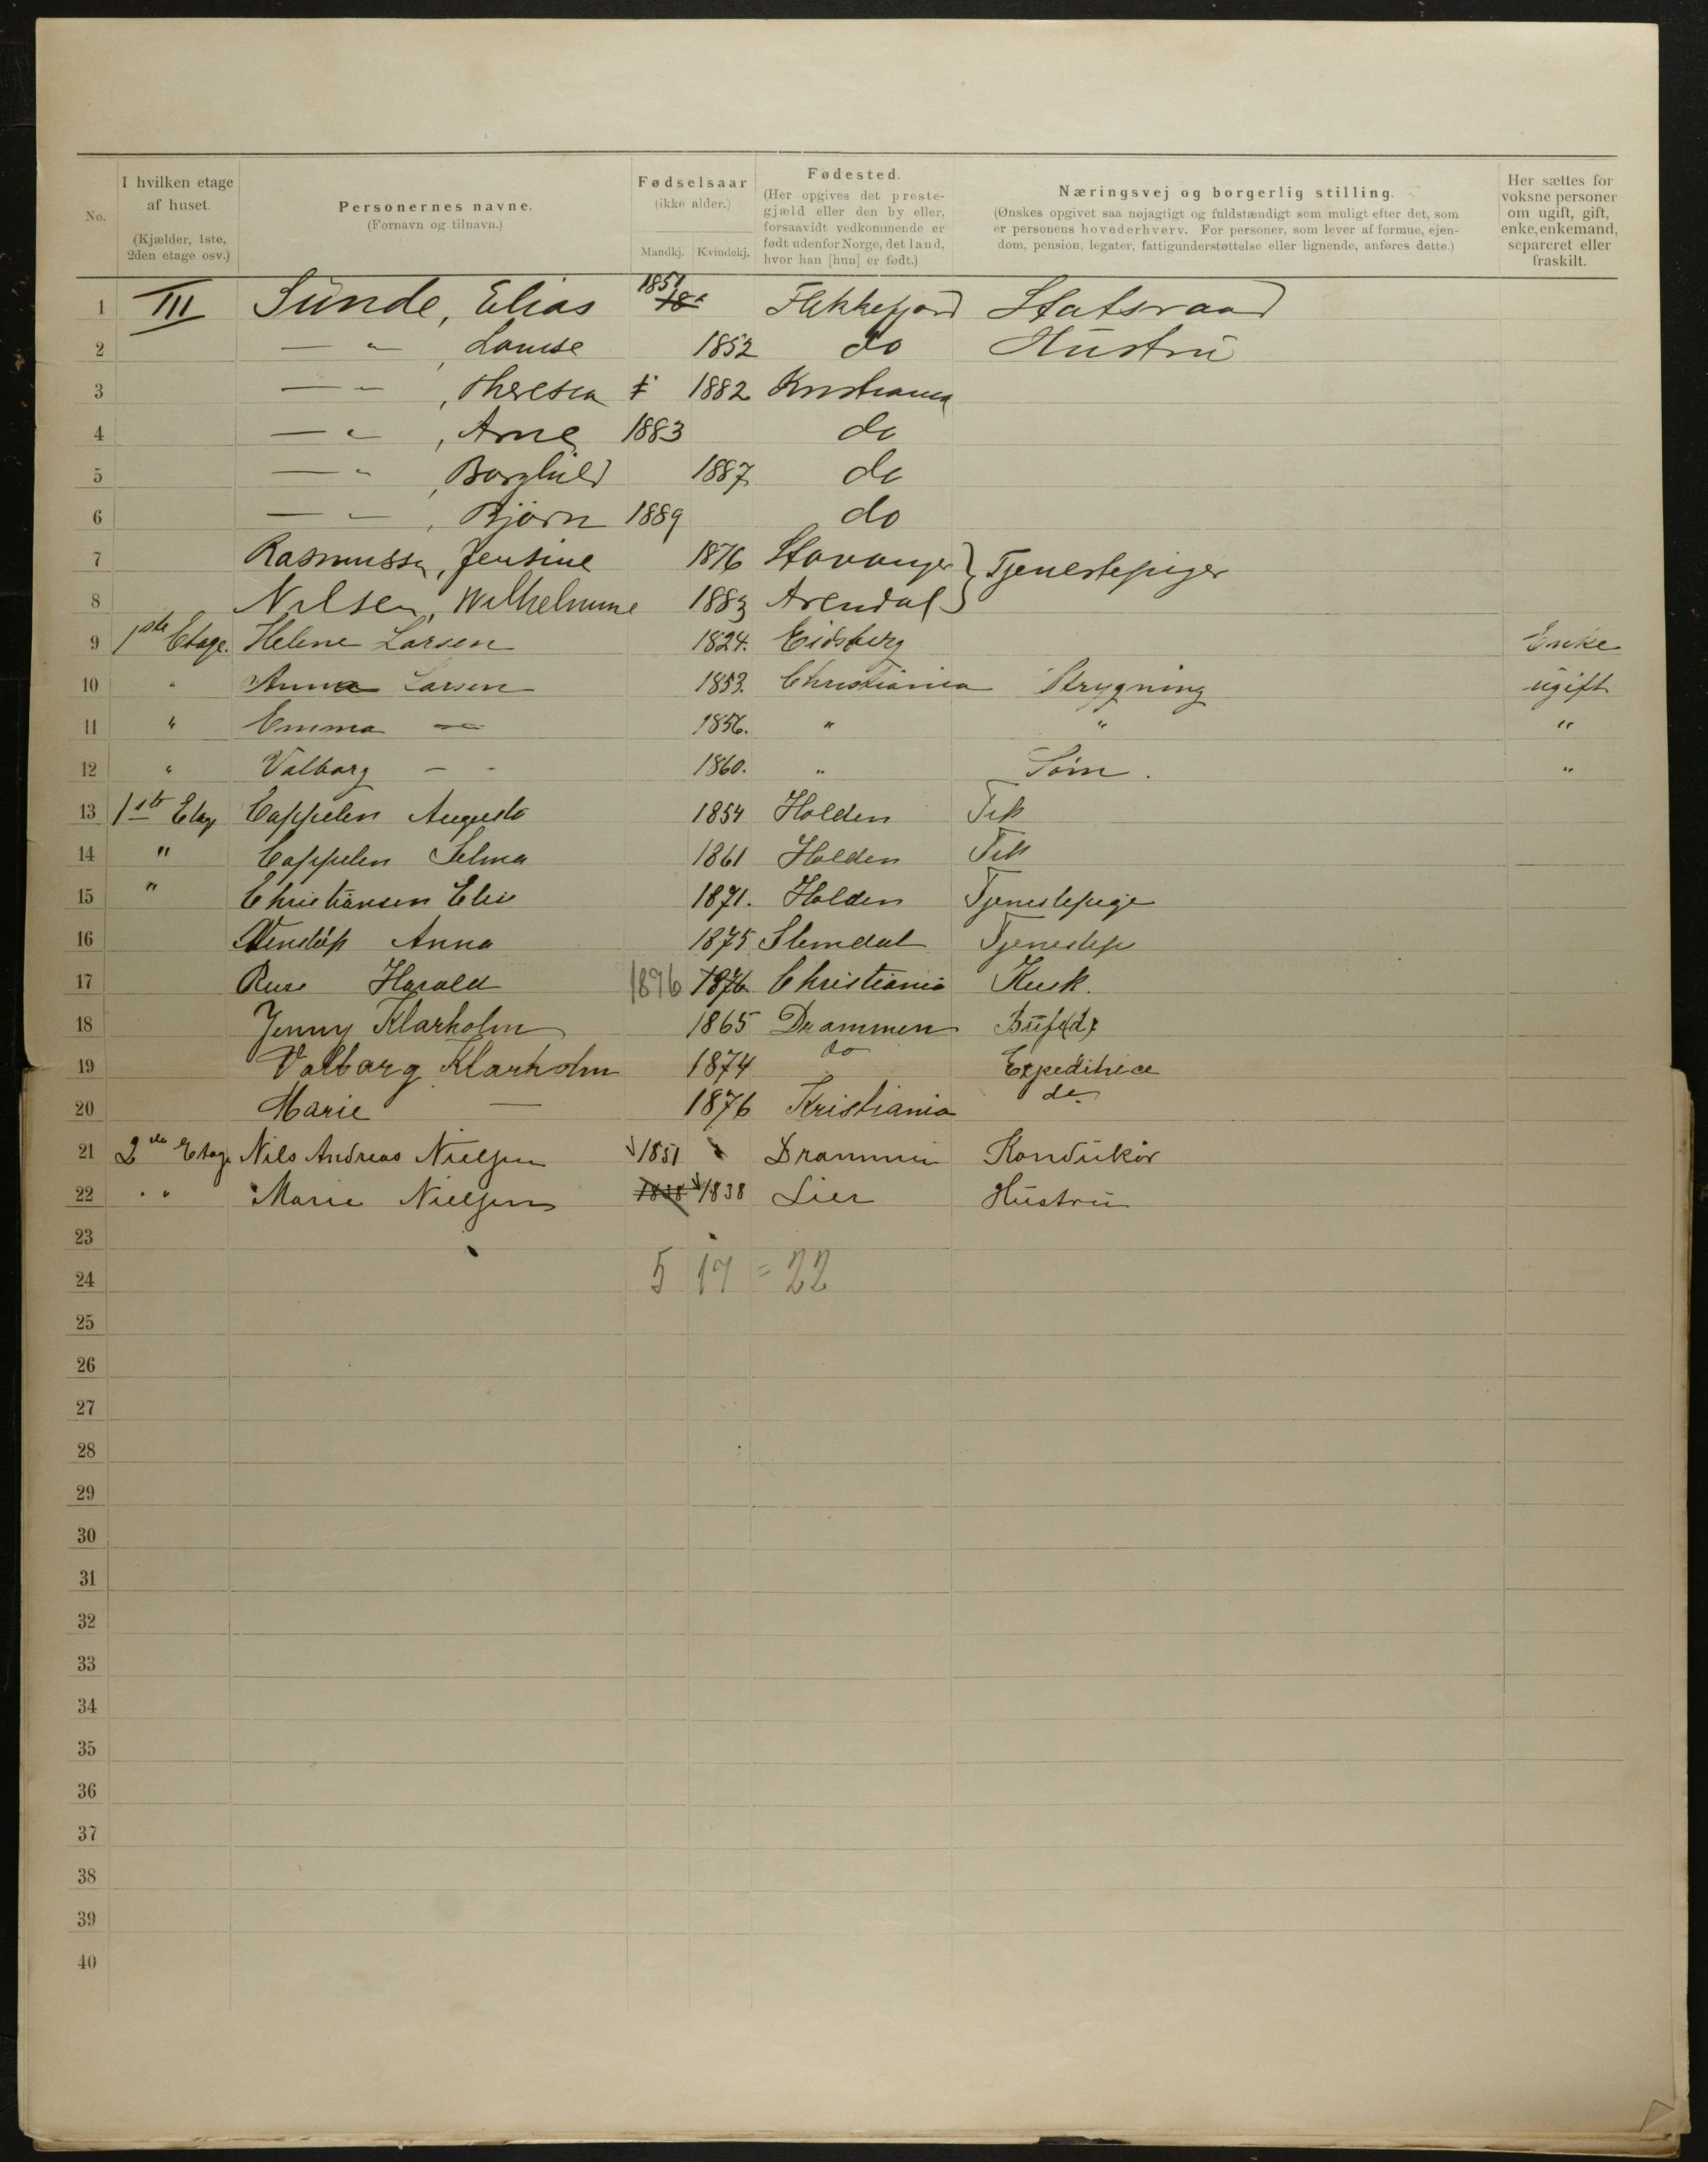 No. | I hvilken etage af huset. (Kjælder, 1ste, 2den etage osv.) | Personernes navne. (Fornavn og tilnavn.) | Fødselsaar (ikke alder.) Mandkj. Kvindekj. | Fødested. (Her opgives det prestegjæld eller den by eller, forsaavidt vedkommende er født udenfor Norge, det land, hvor han [hun] er født.) | Næringsvej og borgerlig stilling. (Ønskes opgivet saa nøjagtigt og fuldstændigt som muligt efter det, som er personens hovederhverv. For personer, som lever af formue, ejendom, pension, legater, fattigunderstøttelse eller lignende, anføres dette.) | Her sættes for voksne personer om ugift, gift, enke, enkemand, separeret eller fraskilt.
1 III Sunde, Elias 1851 Flekkefjord Statsraad
2 — " , Louise 1852 do Hustru
3 — " , Theresia 1882 Kristiania
4 — " , Arne 1883 do
5 — " , Borghild 1887 do
6 — " , Bjørn 1889 do
7 Rasmussen, Jensine 1876 Stavanger } Tjenestepiger
8 Nilsen, Wilhelmine 1883 Arendal
9 1ste Etage. Helene Larsen 1824. Eidsberg Enke
10 " Anna Larsen 1853. Christiania Strygning ugift
11 " Emma — 1856. " " "
12 " Valborg — 1860. " Søm. "
13 1ste Etag Cappelen Augusta 1854 Holden
14 " Cappelen Selma 1861 Holden
15 " Christiansen Elis 1871. Holden Tjenestepige
16 Anna 1875 Slemdal Tjenestep
17 Ruse Harald 1876 1876 Christiania Kusk.
18 Jenny Klarholm 1865 Drammen
19 Valborg Klarholm 1874 do Expeditrice
20 Marie — 1876 Kristiania do
21 2den Etage Nils Andreas Nielsen 1851 Drammen Konduktør
22 " " Marie Nielsen 1838 1838 Lier Hustru
23
24 5 17 = 22
25
26
27
28
29
30
31
32
33
34
35
36
37
38
39
40